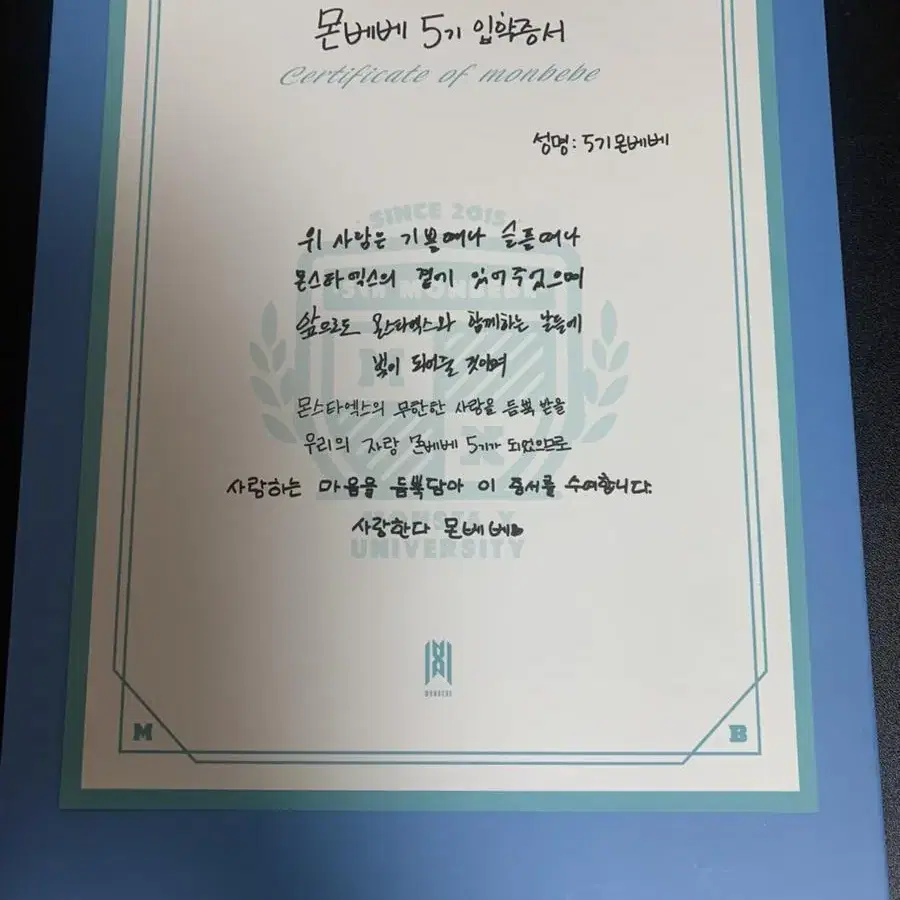 몬베베 5기 입학증서
Certificate of monbebe
성명: 5기몬베베
SINCE 2015
위 사람은 기쁠때나 슬플때나
몬스타엑스의 곁에 있어주었으며
5TH MONBEBE
앞으로도 몬스타엑스와 함께하는 날들에
빛이 되어줄 것이며
몬스타엑스의 무한한 사랑을 듬뿍 받을
우리의 자랑 몬베베 5기가 되었으므로
사랑하는 마음을 듬뿍담아 이 증서를 수여합니다.
사랑한다 몬베베
MONSTA X
UNIVERSITY
MONBEBE
M
B